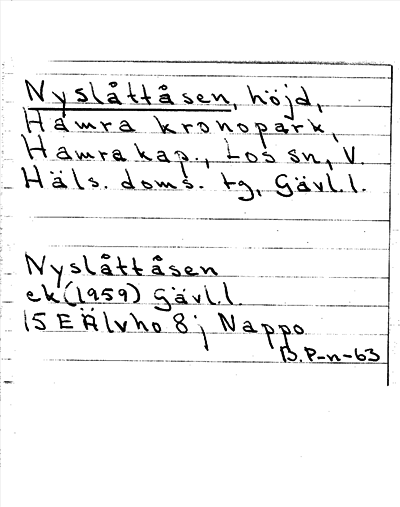 Nyslåttåsen, höjd,
Hamra kronopark,
Hamra kap., Los sn, V.
Häls. doms. tg, Gävl.l.
Nyslåttåsen
ek (1959) Gävl.l.
15 E Älvho 8j Nappo
B. P-n-63